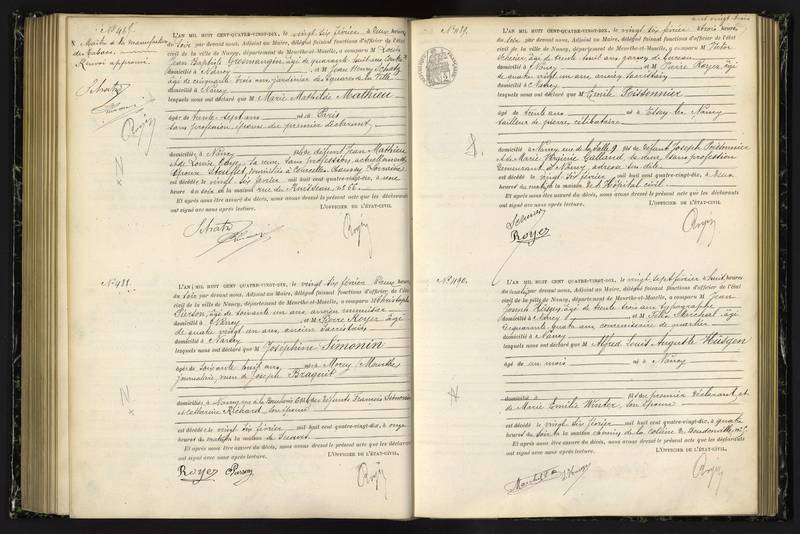 N° 487.
L'AN MIL HUIT CENT QUATRE-VINGT-DIX, le vingt six février à deux heures
du soir par devant nous, Adjoint au Maire, délégué faisant fonctions d'officier de l'état
civil de la ville de Nancy, département de Meurthe-et-Moselle, a comparu M Louis
Jean Baptiste âgé de quarante huit ans
domicilié à Nancy et M Jean Henry Schatz
âgé de cinquante trois ans jardinier des squares de la Ville
domicilié à Nancy
lesquels nous ont déclaré que M Marie Mathilde Mathieu
âgée de trente sept ans née à Paris
sans profession épouse du premier déclarant
domiciliée à Nancy fille de défunt Jean Mathieu
et de Louise sa veuve, sans profession, actuellement
épouse domiciliée à Lorraine
est décédée le vingt six février mil huit cent quatre-vingt-dix, à onze
heures du en la maison rue du Ruisseau n°
Et après nous être assuré du décès, nous avons dressé le présent acte que les déclarants
ont signé avec nous après lecture. L'OFFICIER DE L'ÉTAT-CIVIL,
Schatz
N° 488.
L'AN MIL HUIT CENT QUATRE-VINGT-DIX, le vingt six février deux heures
du soir par devant nous, Adjoint au Maire, délégué faisant fonctions d'officier de l'état
civil de la ville de Nancy, département de Meurthe-et-Moselle, a comparu M Christophe
Pierson, âgé de soixante un ans, ancien
domicilié à Nancy et M Pierre Royer âgé
de quatre vingt un ans, ancien sacristain
domicilié à Nancy
lesquels nous ont déclaré que M Joséphine Simonin
âgée de soixante huit ans, née à Morey (Meurthe)
journalière, veuve de Joseph Braquil
domiciliée à Nancy fille des défunts François Simonin
et Catherine Richard son épouse
est décédée le vingt six février mil huit cent quatre-vingt-dix, à onze
heures du matin en la maison de Secours.
Et après nous être assuré du décès, nous avons dressé le présent acte que les déclarants
ont signé avec nous après lecture. L'OFFICIER DE L'ÉTAT-CIVIL,
Royer Pierson
N° 489.
L'AN MIL HUIT CENT QUATRE-VINGT-DIX, le vingt six février à trois heures
du soir par devant nous, Adjoint au Maire, délégué faisant fonctions d'officier de l'état
civil de la ville de Nancy, département de Meurthe-et-Moselle, a comparu M Victor
âgé de trente huit ans garçon de bureau
domicilié à Nancy et M Pierre Royer, âgé
de quatre vingt un ans, ancien sacristain
domicilié à Nancy
lesquels nous ont déclaré que M Emile Poissonnier
âgé de trente ans né à Essey-les-Nancy
tailleur de pierres, célibataire
domicilié à Nancy rue de la Salle 9 fils de défunt Joseph Poissonnier
et de Marie Virginie Galland, sa veuve, sans profession
demeurant à Nancy
est décédé le vingt six février mil huit cent quatre-vingt-dix, à deux
heures du matin en la maison de l'Hôpital civil.
Et après nous être assuré du décès, nous avons dressé le présent acte que les déclarants
ont signé avec nous après lecture. L'OFFICIER DE L'ÉTAT-CIVIL,
Royer
N° 490.
L'AN MIL HUIT CENT QUATRE-VINGT-DIX, le vingt sept février à huit heures
du matin par devant nous, Adjoint au Maire, délégué faisant fonctions d'officier de l'état
civil de la ville de Nancy, département de Meurthe-et-Moselle, a comparu M Jean
Joseph Hüsgen âgé de trente trois ans typographe
domicilié à Nancy et M Félix Marchal âgé
de quarante quatre ans commissaire de quartier
domicilié à Nancy
lesquels nous ont déclaré que M Alfred Louis Auguste Hüsgen
âgé de un mois né à Nancy
domicilié à fils du premier déclarant et
de Marie Emilie Winter, son épouse
est décédé le vingt six février mil huit cent quatre-vingt-dix, à quatre
heures du soir en la maison chemin de la Colline de Boudonville, n°
Et après nous être assuré du décès, nous avons dressé le présent acte que les déclarants
ont signé avec nous après lecture. L'OFFICIER DE L'ÉTAT-CIVIL,